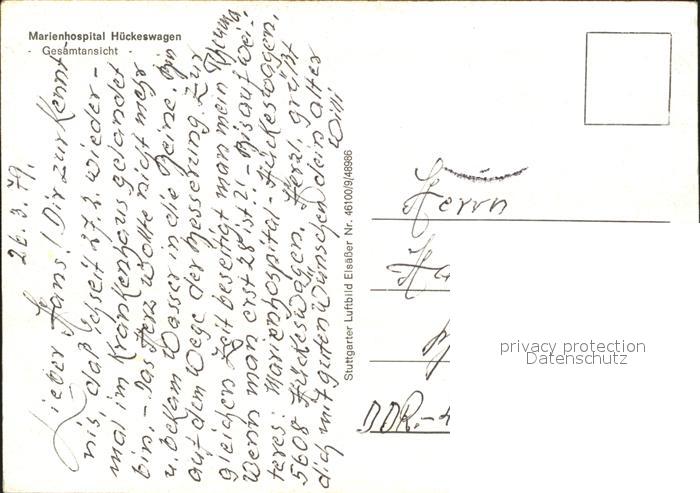 Marienhospital Hückeswagen
- Gesamtansicht -
26.3.79.
Lieber Hans! Dir zur Kennt-
nis, daß ich seit 27.2. wieder-
mal im Krankenhaus gelandet
bin. - Das Herz wollte nicht mehr
u. bekam Wasser in die Beine. Bin
auf dem Wege der Besserung. Zur
gleichen Zeit beseitigt man mein
Wenn man erst 28 ist?! - Bis auf wei-
teres: Marienhospital - Hückeswagen,
5608 Hückeswagen. Herzl. grüßt
dich mit guten Wünschen dein alter
Willi
Stuttgarter Luftbild Elsäßer Nr. 46100/9/48986
Herrn
H
DDR.-
privacy protection
Datenschutz